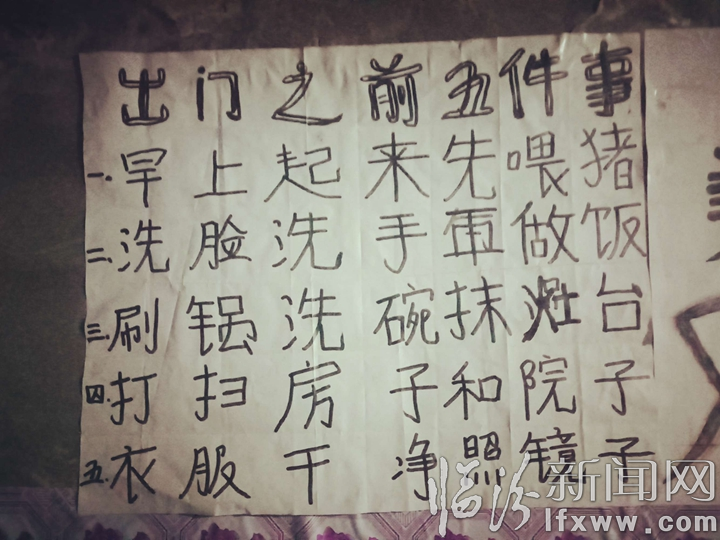 出门之前五件事
一.早上起来先喂猪
二.洗脸洗手再做饭
三.刷锅洗碗抹灶台
四.打扫房子和院子
五.衣服干净照镜子
临汾新闻网
lfxww.com